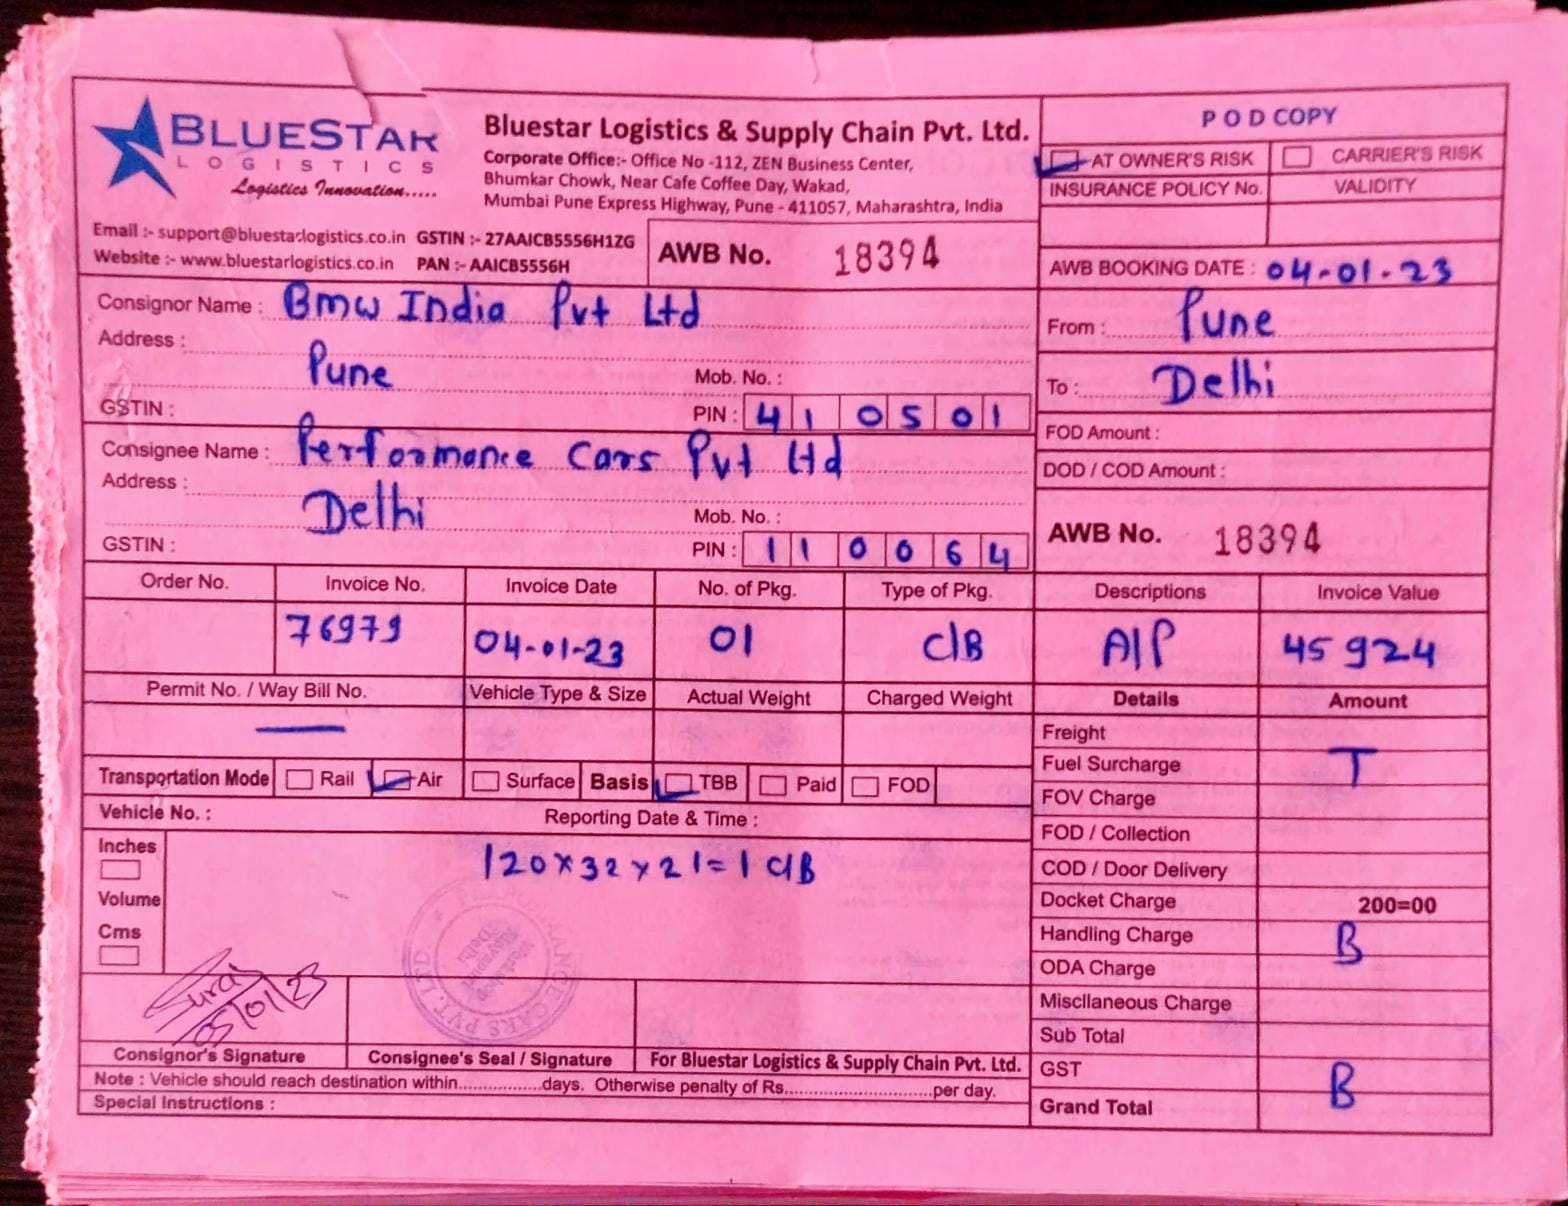 BLUESTAR
LOGISTICS
Logistics Innovation.....
Bluestar Logistics & Supply Chain Pvt. Ltd.
Corporate Office:- Office No -112, ZEN Business Center,
Bhumkar Chowk, Near Cafe Coffee Day, Wakad,
Mumbai Pune Express Highway, Pune - 411057, Maharashtra, India
Email :- support@bluestarlogistics.co.in GSTIN :- 27AAICB5556H1ZG
Website :- www.bluestarlogistics.co.in PAN :- AAICB5556H
AWB No. 18394
POD COPY
AT OWNER'S RISK CARRIER'S RISK
INSURANCE POLICY No. VALIDITY
AWB BOOKING DATE : 04-01-23
Consignor Name : Bmw India Pvt Ltd
Address :
Pune Mob. No. :
GSTIN : PIN : 410501
From : Pune
To : Delhi
Consignee Name : Performance Cars Pvt Ltd
Address :
Delhi Mob. No. :
GSTIN : PIN : 110064
FOD Amount :
DOD / COD Amount :
AWB No. 18394
Order No. Invoice No. Invoice Date No. of Pkg. Type of Pkg. Descriptions Invoice Value
76979 04-01-23 01 C/B A/P 45924
Permit No. / Way Bill No. Vehicle Type & Size Actual Weight Charged Weight Details Amount
Transportation Mode Rail Air Surface Basis TBB Paid FOD
Vehicle No. : Reporting Date & Time :
Inches
Volume
Cms
120x32x21=1 C/B
Freight
Fuel Surcharge T
FOV Charge
FOD / Collection
COD / Door Delivery
Docket Charge 200=00
Handling Charge B
ODA Charge
Miscllaneous Charge
Sub Total
GST B
Grand Total
Suraj
05/01/23
CARS PVT. LTD
Consignor's Signature Consignee's Seal / Signature For Bluestar Logistics & Supply Chain Pvt. Ltd.
Note : Vehicle should reach destination within.................days. Otherwise penalty of Rs..............................per day.
Special Instructions :